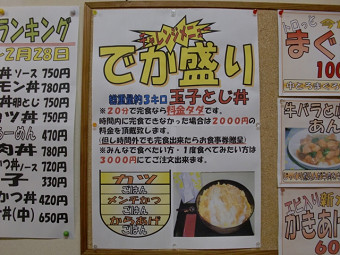 ランキング
2月28日
丼 ソース 750円
モン丼 780円
丼 卵とじ 750円
カツ丼 750円
らーめん 470円
肉丼 780円
かつ丼 ソース 720円
子 330円
かつ丼 420円
丼(中) 650円
チャレンジメニュー
でか盛り
総重量約3キロ 玉子とじ丼
※20分で完食なら料金タダです。
時間内に完食できなかった場合は2000円の
料金を頂戴致します。
(但し時間外でも完食出来たらお食事券贈呈)
※みんなで食べたい方・1度食べてみたい方は
3000円にてご注文出来ます。
カツ
ごはん
メンチかつ
ごはん
からあげ
ごはん
トロっと
まぐ
100
牛バラと
あん
かきあげ
60